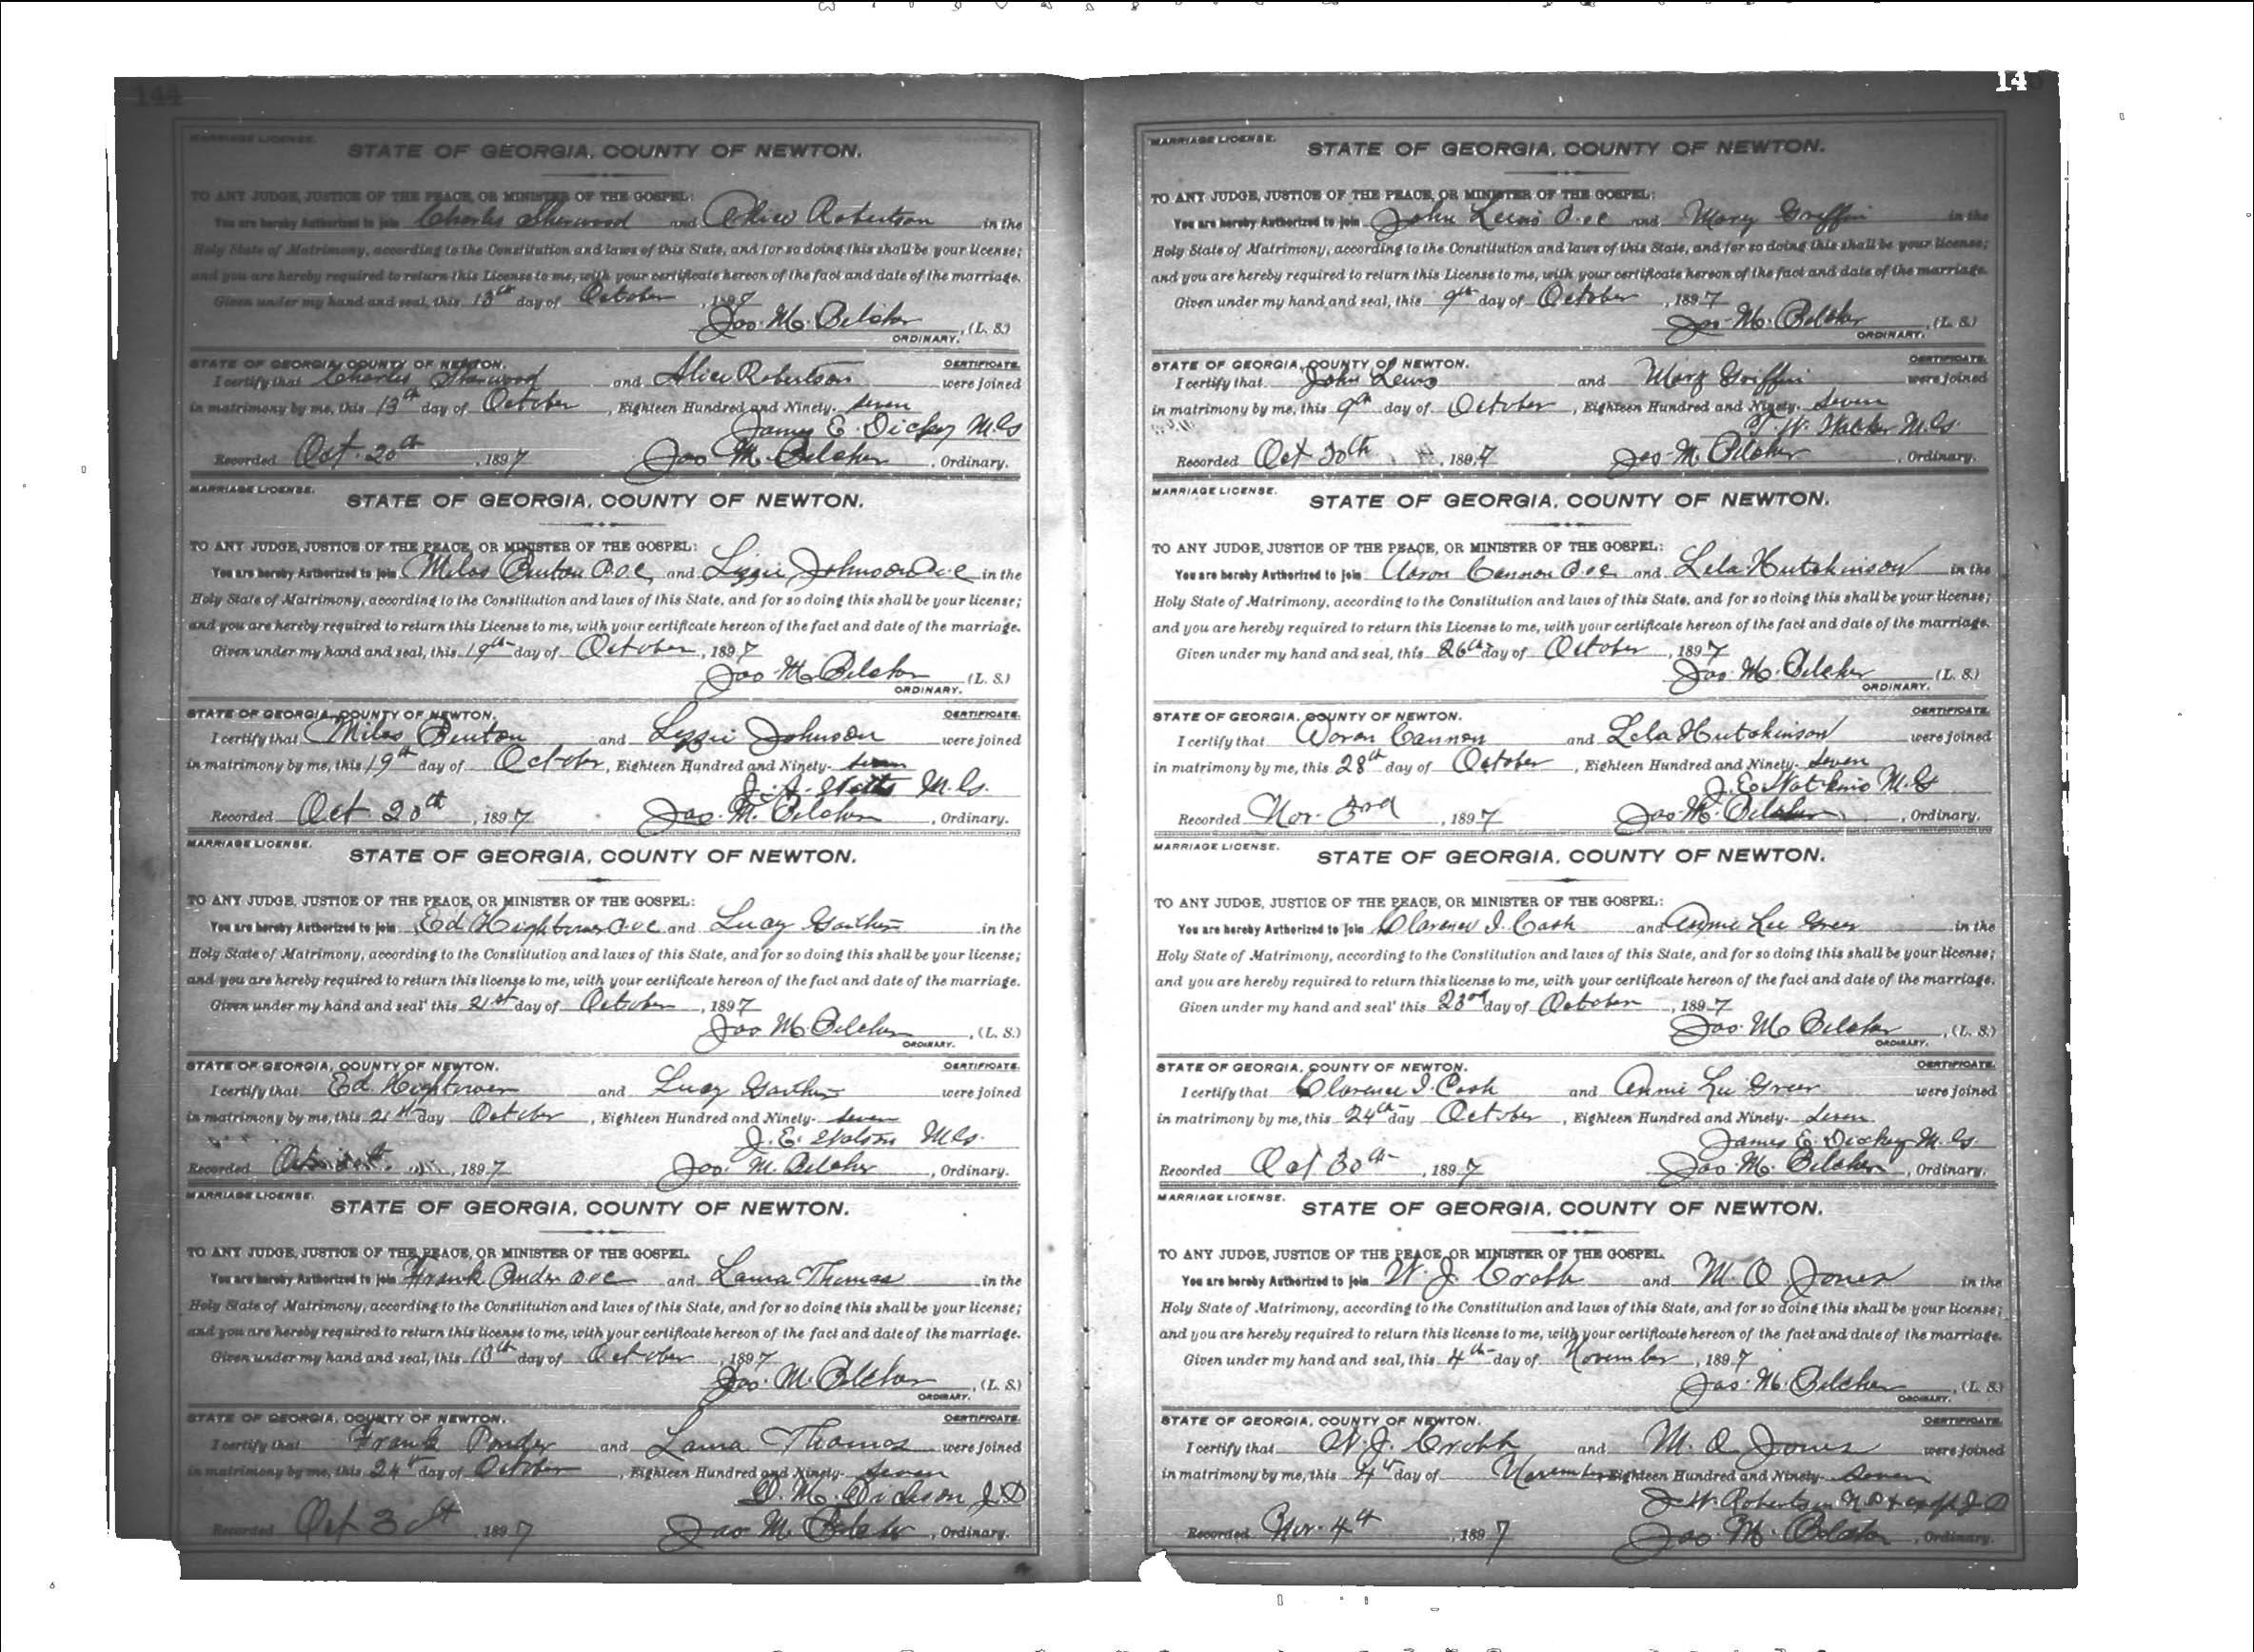 144
MARRIAGE LICENSE.
STATE OF GEORGIA, COUNTY OF NEWTON.
TO ANY JUDGE, JUSTICE OF THE PEACE, OR MINISTER OF THE GOSPEL:
You are hereby Authorized to join Charles Sherwood and Alice Robertson in the
Holy State of Matrimony, according to the Constitution and laws of this State, and for so doing this shall be your license;
and you are hereby required to return this License to me, with your certificate hereon of the fact and date of the marriage.
Given under my hand and seal, this 13th day of October, 1897
Jas. M. Pilcher, (L. S.)
ORDINARY.
STATE OF GEORGIA, COUNTY OF NEWTON. CERTIFICATE.
I certify that Charles Sherwood and Alice Robertson were joined
in matrimony by me, this 13th day of October, Eighteen Hundred and Ninety- seven
James E. Dickey M.G
Recorded Oct. 20th, 1897 Jas M. Pilcher, Ordinary.
MARRIAGE LICENSE.
STATE OF GEORGIA, COUNTY OF NEWTON.
TO ANY JUDGE, JUSTICE OF THE PEACE, OR MINISTER OF THE GOSPEL:
You are hereby Authorized to join Milas Benton and Lizzie Johnson in the
Holy State of Matrimony, according to the Constitution and laws of this State, and for so doing this shall be your license;
and you are hereby required to return this License to me, with your certificate hereon of the fact and date of the marriage.
Given under my hand and seal, this 19th day of October, 1897
Jas M. Pilcher (L. S.)
ORDINARY.
STATE OF GEORGIA, COUNTY OF NEWTON. CERTIFICATE.
I certify that Milas Benton and Lizzie Johnson were joined
in matrimony by me, this 19th day of October, Eighteen Hundred and Ninety- seven
M.G.
Recorded Oct. 20th, 1897 Jas. M. Pilcher, Ordinary.
MARRIAGE LICENSE.
STATE OF GEORGIA, COUNTY OF NEWTON.
TO ANY JUDGE, JUSTICE OF THE PEACE, OR MINISTER OF THE GOSPEL:
You are hereby Authorized to join Ed Hightower and Lucy Gaither in the
Holy State of Matrimony, according to the Constitution and laws of this State, and for so doing this shall be your license;
and you are hereby required to return this license to me, with your certificate hereon of the fact and date of the marriage.
Given under my hand and seal' this 21st day of October, 1897
Jas M. Pilcher, (L. S.)
ORDINARY.
STATE OF GEORGIA, COUNTY OF NEWTON. CERTIFICATE.
I certify that Ed Hightower and Lucy Gaither were joined
in matrimony by me, this 21st day October, Eighteen Hundred and Ninety- seven
J. E. Watson M.G.
Recorded, 1897 Jas. M. Pilcher, Ordinary.
MARRIAGE LICENSE.
STATE OF GEORGIA, COUNTY OF NEWTON.
TO ANY JUDGE, JUSTICE OF THE PEACE, OR MINISTER OF THE GOSPEL.
You are hereby Authorized to join Frank Ponder and Laura Thomas in the
Holy State of Matrimony, according to the Constitution and laws of this State, and for so doing this shall be your license;
and you are hereby required to return this license to me, with your certificate hereon of the fact and date of the marriage.
Given under my hand and seal, this day of October, 1897
Jas. M. Pilcher, (L. S.)
ORDINARY.
STATE OF GEORGIA, COUNTY OF NEWTON. CERTIFICATE.
I certify that Frank Ponder and Laura Thomas were joined
in matrimony by me, this 24th day of October, Eighteen Hundred and Ninety- seven
D. M. Dickson
Recorded Oct, 1897 Jas M. Pilcher, Ordinary.
14
MARRIAGE LICENSE.
STATE OF GEORGIA, COUNTY OF NEWTON.
TO ANY JUDGE, JUSTICE OF THE PEACE, OR MINISTER OF THE GOSPEL:
You are hereby Authorized to join John Lewis and Mary Griffin in the
Holy State of Matrimony, according to the Constitution and laws of this State, and for so doing this shall be your license;
and you are hereby required to return this License to me, with your certificate hereon of the fact and date of the marriage.
Given under my hand and seal, this 9th day of October, 1897
Jas. M. Pilcher, (L. S.)
ORDINARY.
STATE OF GEORGIA, COUNTY OF NEWTON. CERTIFICATE.
I certify that John Lewis and Mary Griffin were joined
in matrimony by me, this 9th day of October, Eighteen Hundred and Ninety- Seven
T. W. Walker M.G.
Recorded Oct 30th, 1897 Jas. M. Pilcher, Ordinary.
MARRIAGE LICENSE.
STATE OF GEORGIA, COUNTY OF NEWTON.
TO ANY JUDGE, JUSTICE OF THE PEACE, OR MINISTER OF THE GOSPEL:
You are hereby Authorized to join Aaron Cannon and Lela Hutchinson in the
Holy State of Matrimony, according to the Constitution and laws of this State, and for so doing this shall be your license;
and you are hereby required to return this License to me, with your certificate hereon of the fact and date of the marriage.
Given under my hand and seal, this 26th day of October, 1897
Jas. M. Pilcher (L. S.)
ORDINARY.
STATE OF GEORGIA, COUNTY OF NEWTON. CERTIFICATE.
I certify that Cannon and Lela Hutchinson were joined
in matrimony by me, this 28th day of October, Eighteen Hundred and Ninety- seven
J. E. Watkins M.G
Recorded Nov. 3rd, 1897 Jas. M. Pilcher, Ordinary.
MARRIAGE LICENSE.
STATE OF GEORGIA, COUNTY OF NEWTON.
TO ANY JUDGE, JUSTICE OF THE PEACE, OR MINISTER OF THE GOSPEL:
You are hereby Authorized to join Clarence I. Cash and Annie Lee Greer in the
Holy State of Matrimony, according to the Constitution and laws of this State, and for so doing this shall be your license;
and you are hereby required to return this license to me, with your certificate hereon of the fact and date of the marriage.
Given under my hand and seal' this 23rd day of October, 1897
Jas. M. Pilcher, (L. S.)
ORDINARY.
STATE OF GEORGIA, COUNTY OF NEWTON. CERTIFICATE.
I certify that Clarence I. Cash and Annie Lee Greer were joined
in matrimony by me, this 24th day October, Eighteen Hundred and Ninety- Seven
James E. Dickey M.G.
Recorded Oct 30th, 1897 Jas. M. Pilcher, Ordinary.
MARRIAGE LICENSE.
STATE OF GEORGIA, COUNTY OF NEWTON.
TO ANY JUDGE, JUSTICE OF THE PEACE, OR MINISTER OF THE GOSPEL.
You are hereby Authorized to join W. J. Crobb and M. O. Jones in the
Holy State of Matrimony, according to the Constitution and laws of this State, and for so doing this shall be your license;
and you are hereby required to return this license to me, with your certificate hereon of the fact and date of the marriage.
Given under my hand and seal, this 4th day of November, 1897
Jas. M. Pilcher, (L. S.)
ORDINARY.
STATE OF GEORGIA, COUNTY OF NEWTON. CERTIFICATE.
I certify that W. J. Crobb and M. O. Jones were joined
in matrimony by me, this 4th day of November Eighteen Hundred and Ninety- Seven
J. W. Robertson
Recorded Nov. 4th, 1897 Jas. M. Pilcher, Ordinary.